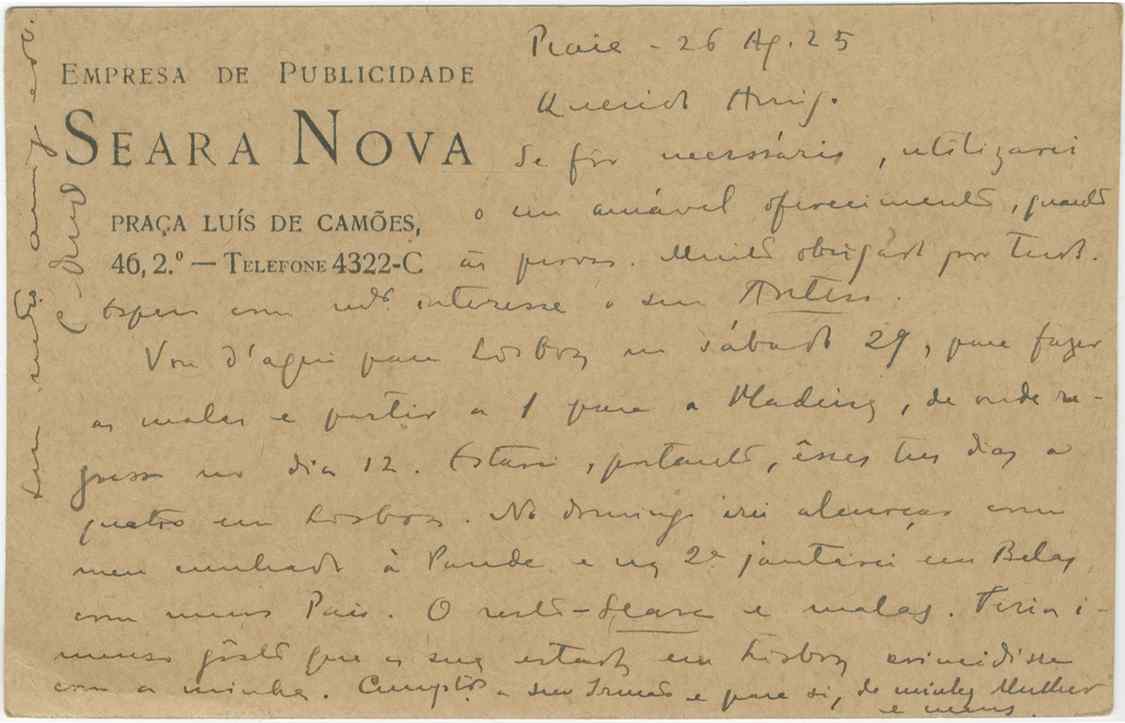 EMPRESA DE PUBLICIDADE
SEARA NOVA
PRAÇA LUÍS DE CAMÕES,
46, 2.º — TELEFONE 4322-C
Praia - 26 Ag. 25
Querido Amig.
Se fôr necessário, utilizarei
o seu amável oferecimento, quanto
às provas. Muito obrigado por tudo.
Espero com mto interesse o seu Antero.
Vou d'aqui para Lisboa no sábado 29, para fazer
as malas e partir a 1 para a Madeira, de onde re-
gresso no dia 12. Estarei, portanto, êsses tres dias a
quatro em Lisboa. No domingo irei almoçar com
meu cunhado à Parede e na 2ª jantarei em Belas
com meus Pais. O resto - Seara e malas. Teria i-
menso gôsto que a sua estada em Lisboa coincidisse
com a minha. Cumptos a seu Irmão e para si, de minha Mulher
e meus.
Seu mto amigo e